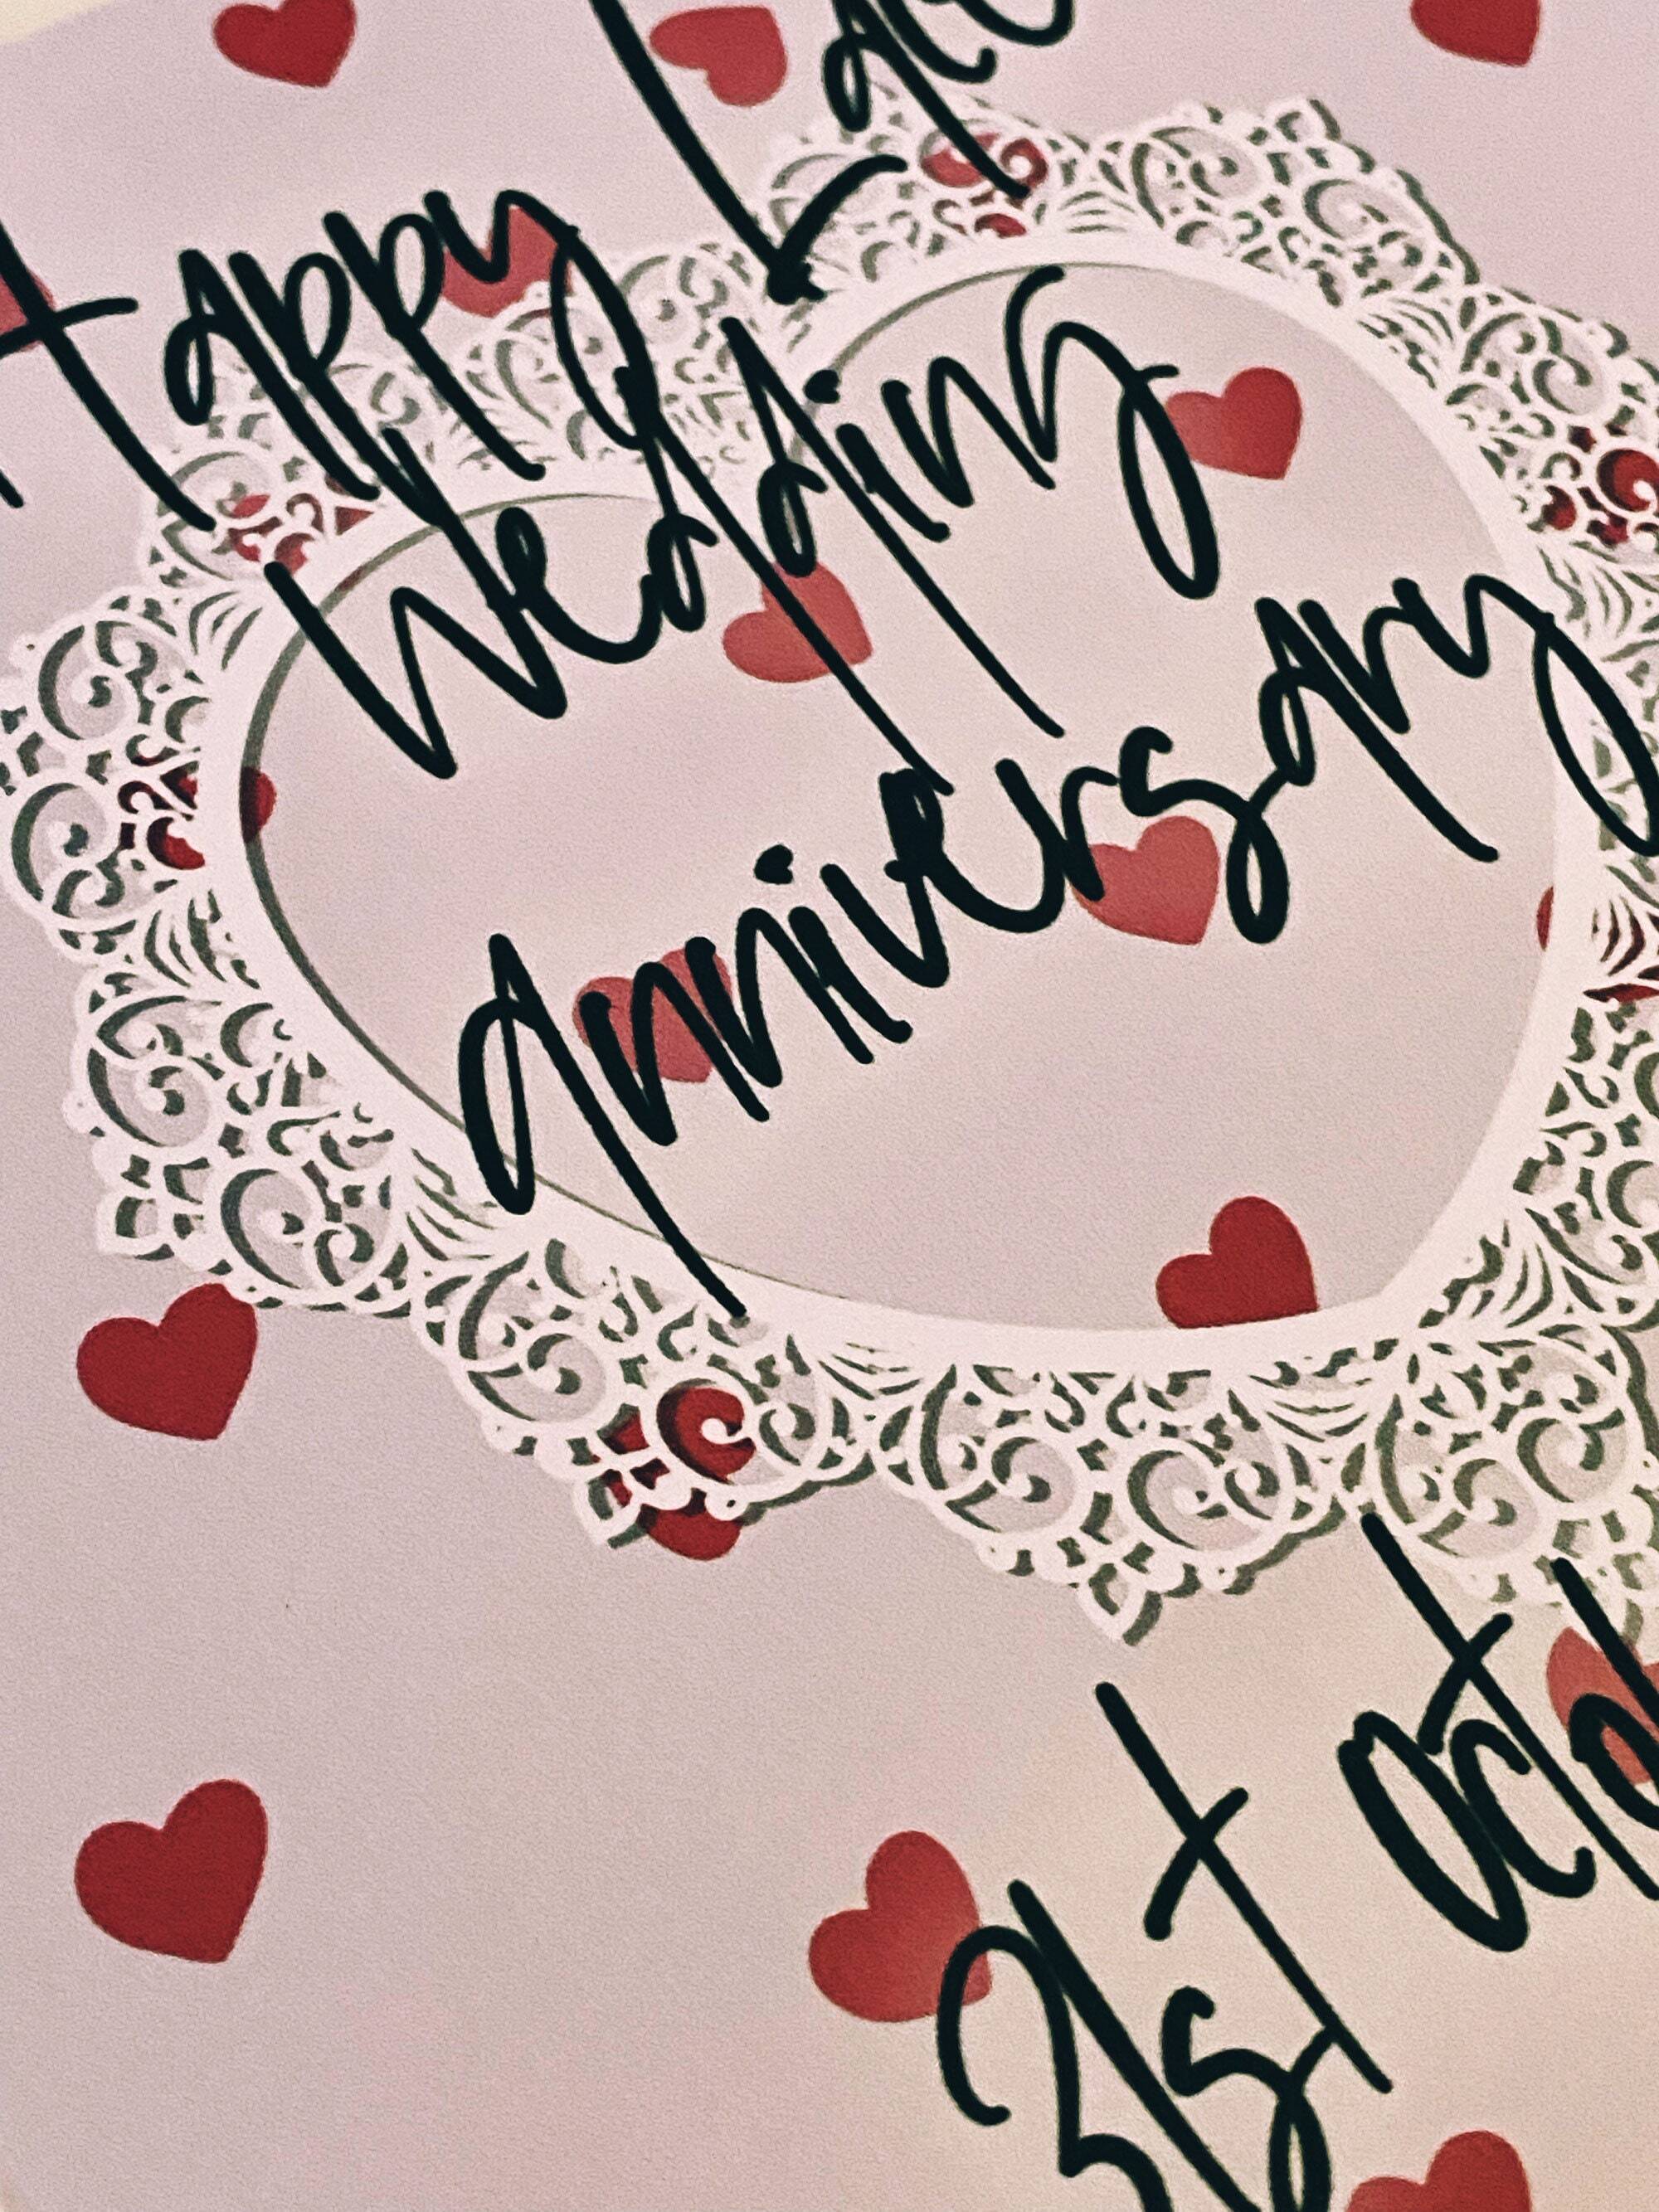 Happy Lace
Wedding
Anniversary
31st Octo